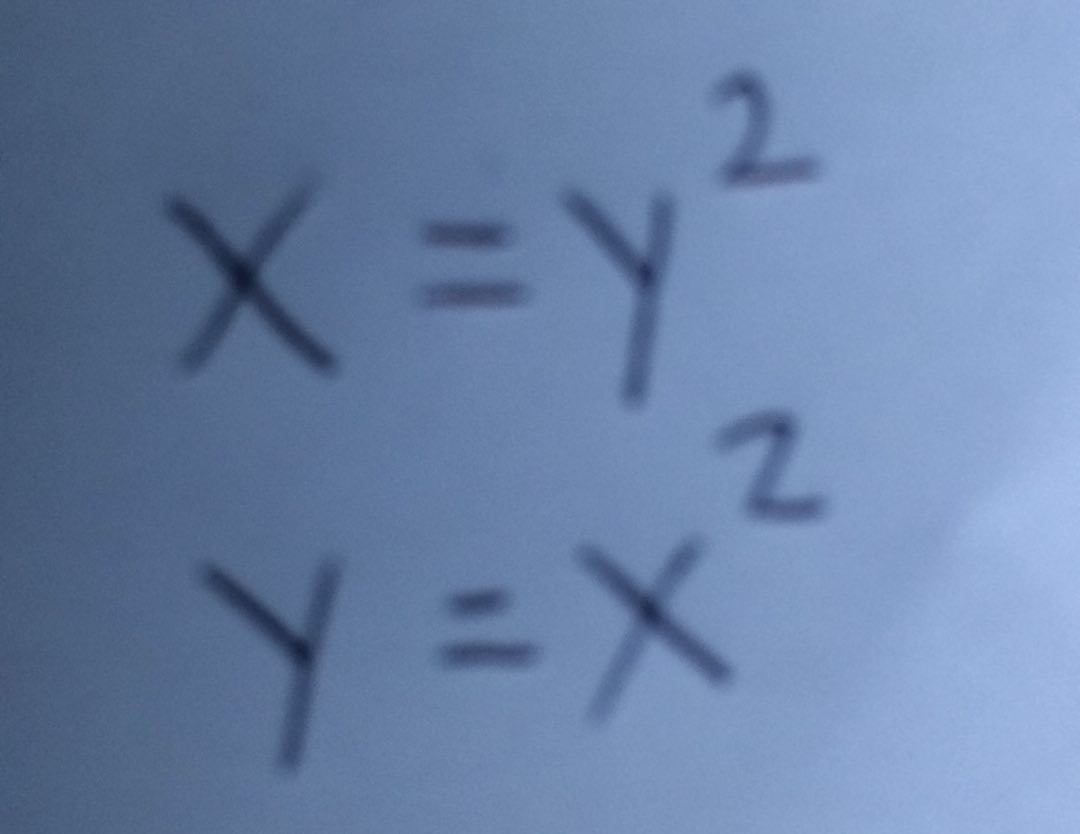 X = Y²
Y = X²